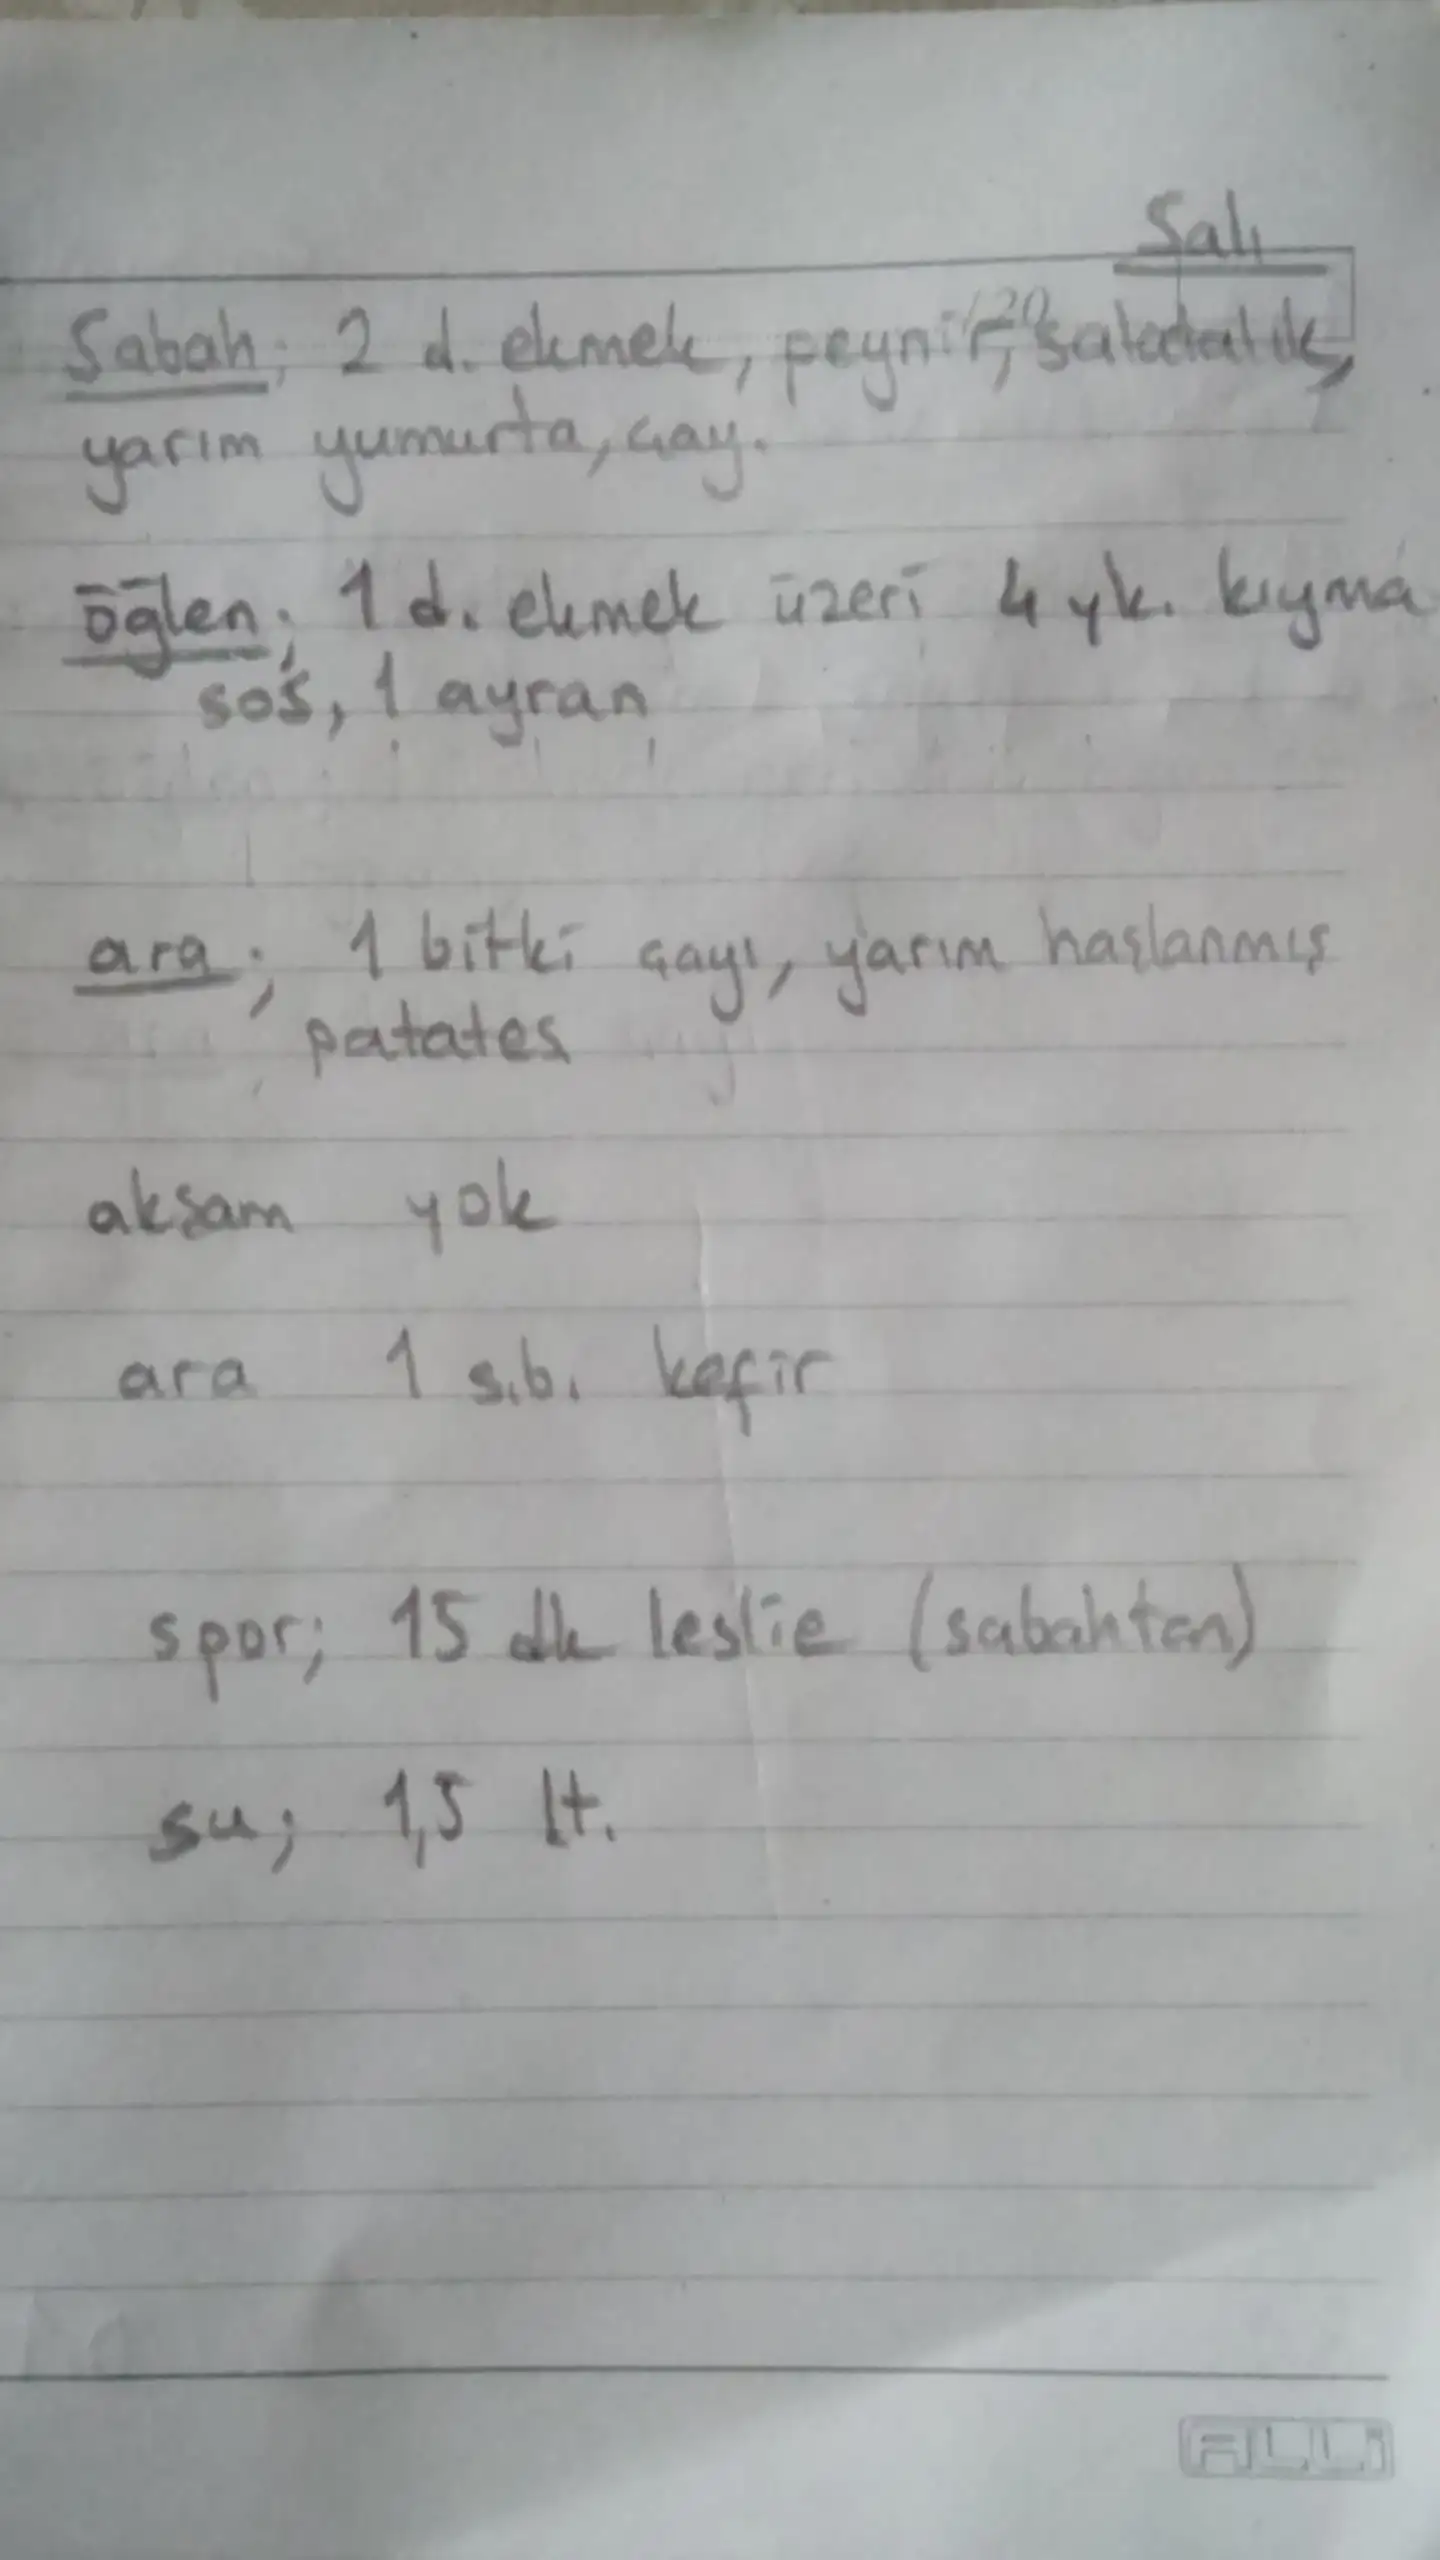 Salı
Sabah; 2 d. ekmek, peynir, salatalık,
yarım yumurta, çay.
öğlen; 1 d. ekmek üzeri 4 yk. kıyma
sos, 1 ayran
ara; 1 bitki çayı, yarım haşlanmış
patates
aksam yok
ara 1 s.b. kefir
spor; 15 dk leslie (sabahtan)
su; 1,5 lt.
ALLi